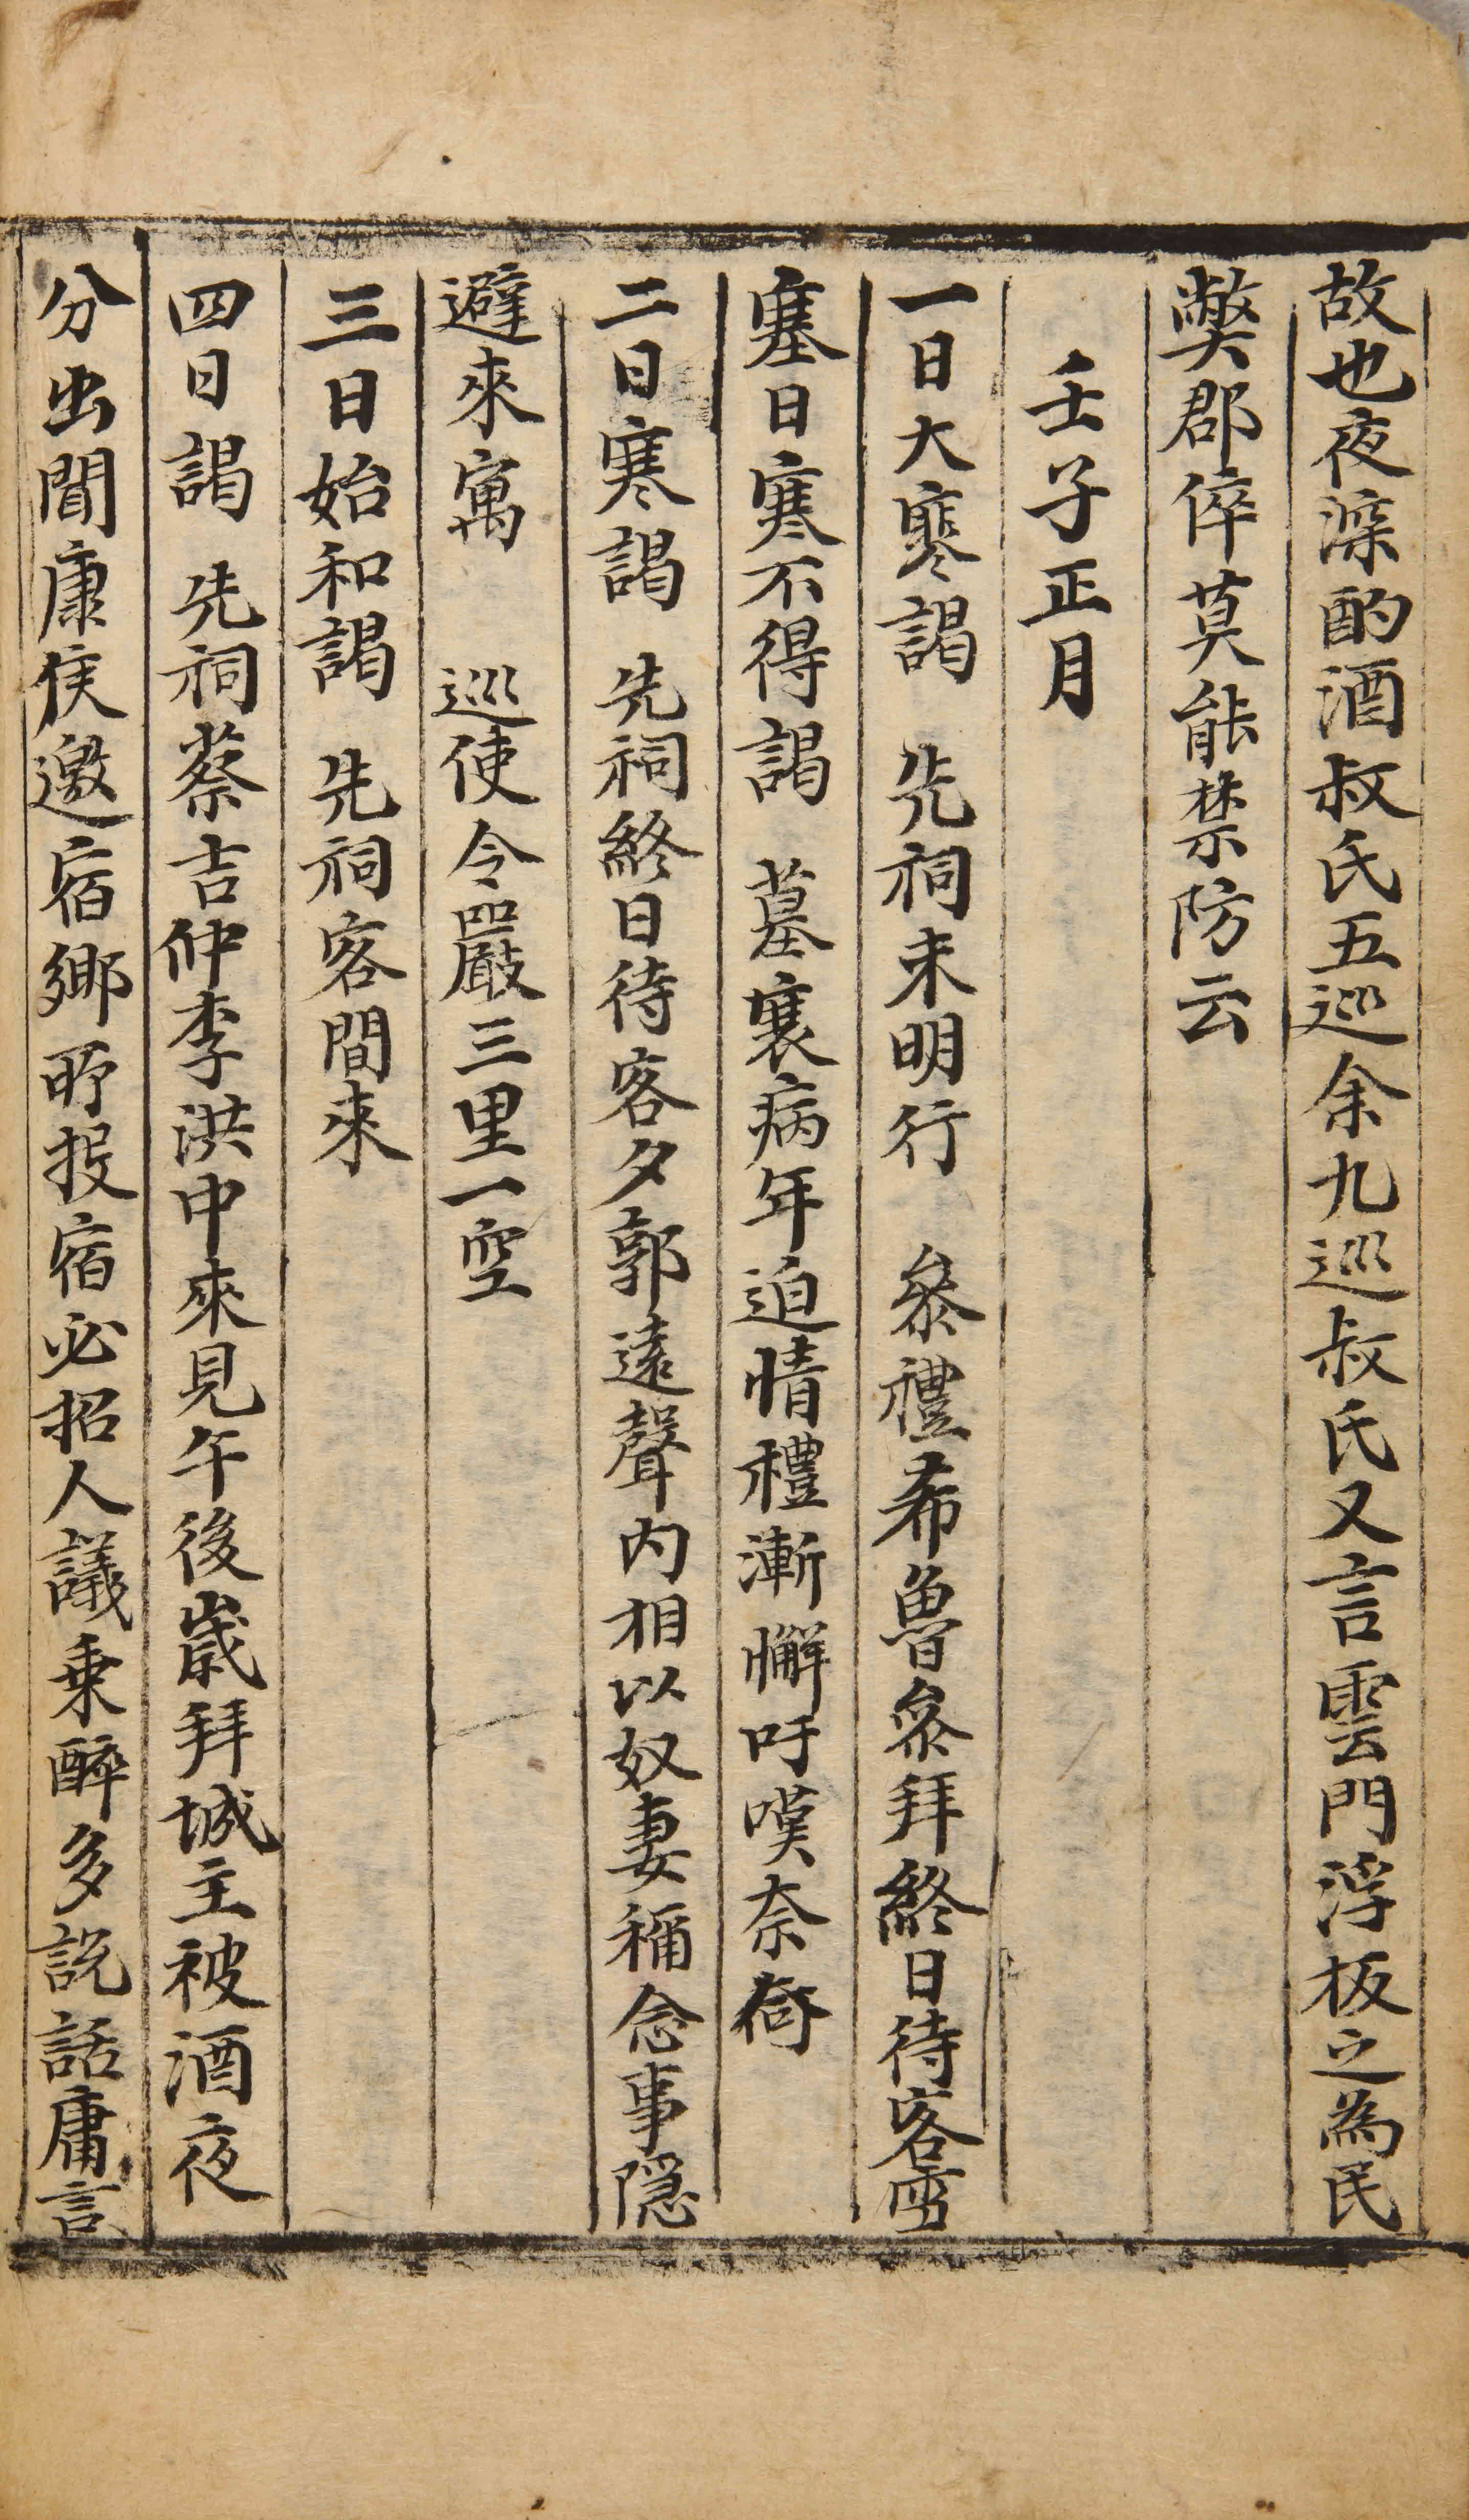 故也夜深酌酒叔氏五巡余九巡叔氏又言雲門浮板之為民
獘郡倅莫能禁防云
壬子正月
一日大寒謁 先祠未明行 叅禮希魯叅拜終日待客雪
塞日寒不得謁 墓衰病年迫情禮漸懈吁嘆奈何
二日寒謁 先祠終日待客夕郭遠聲內相以奴妻稱念事隠
避來寓 巡使令嚴三里一空
三日始和謁 先祠客間來
四日謁 先祠蔡吉仲李洪中來見午後歳拜城主被酒夜
分出聞康侯邀宿鄉所投宿必招人議乗醉多説話庸言